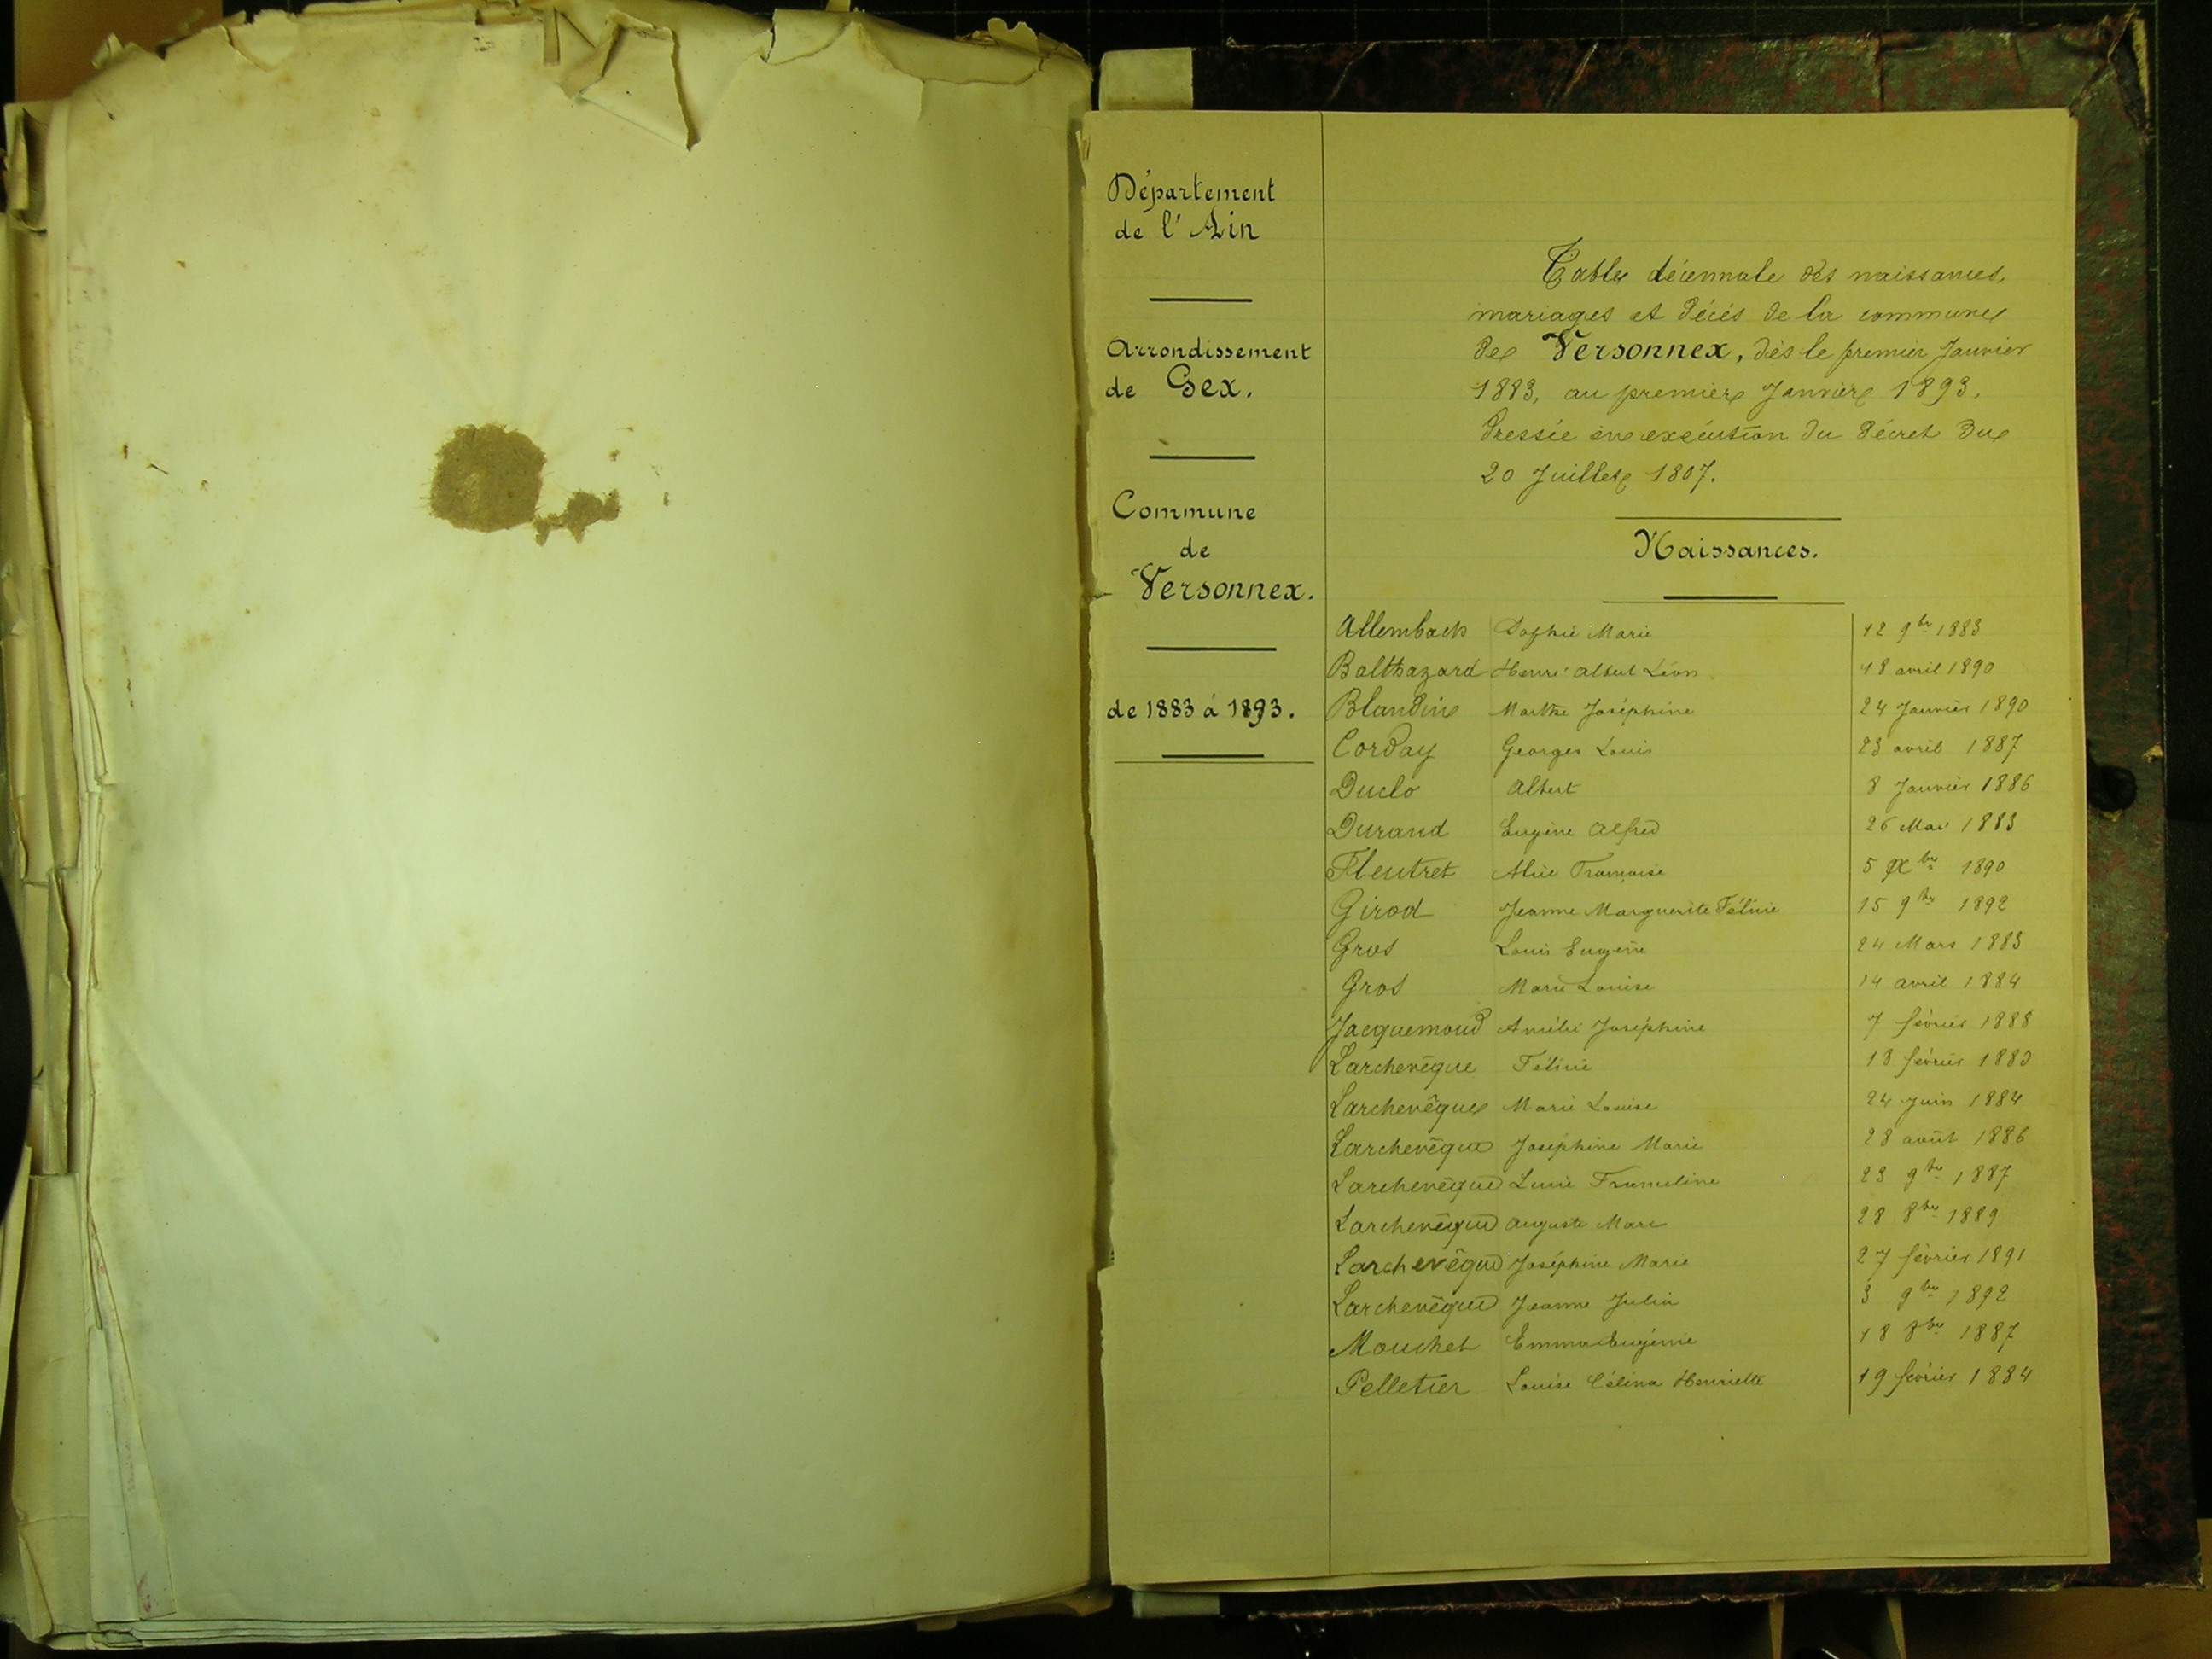 Département
de l'Ain
Arrondissement
de Gex.
Commune
de
Versonnex.
de 1883 à 1893.
Table décennale des naissances,
mariages et décès de la commune
de Versonnex, dès le premier Janvier
1883, au premier Janvier 1893.
Dressée en exécution du décret du
20 Juillet 1807.
Naissances.
Allembach Sophie Marie 12 9bre 1883
Balthazard Henri Albert Léon 18 avril 1890
Blandin Marthe Joséphine 24 Janvier 1890
Corday Georges Louis 23 avril 1887
Duclo Albert 8 Janvier 1886
Durand Eugène Alfred 26 Mai 1883
Fleutret Alice Françoise 5 Xbre 1890
Girod Jeanne Marguerite Félicie 15 9bre 1892
Gros Louis Eugène 24 Mars 1883
Gros Marie Louise 14 avril 1884
Jacquemoud Amélie Joséphine 7 février 1888
Larchevêque Félicie 18 février 1883
Larchevêque Marie Louise 24 Juin 1884
Larchevêque Joséphine Marie 28 août 1886
Larchevêque Lucie 23 9bre 1887
Larchevêque Auguste Marc 28 8bre 1889
Larchevêque Joséphine Marie 27 février 1891
Larchevêque Jeanne Julia 3 9bre 1892
Mouchet Emma Eugénie 18 8bre 1887
Pelletier Louise Célina Henriette 19 février 1884